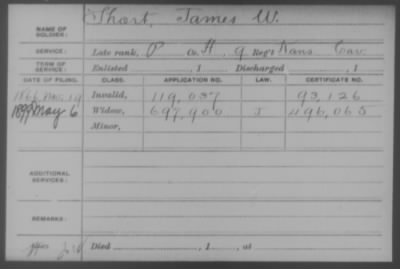 NAME OF SOLDIER: Short, James W.
SERVICE: Late rank, P Co. H, 9 Reg't Kans Cav.
TERM OF SERVICE: Enlisted , 1 Discharged , 1
DATE OF FILING. CLASS. APPLICATION NO. LAW. CERTIFICATE NO.
1866 Nov. 19 Invalid, 119,037 93,126
May 6 Widow, 697,900 J 496,065
Minor,
ADDITIONAL SERVICES:
REMARKS:
Died , 1 , at